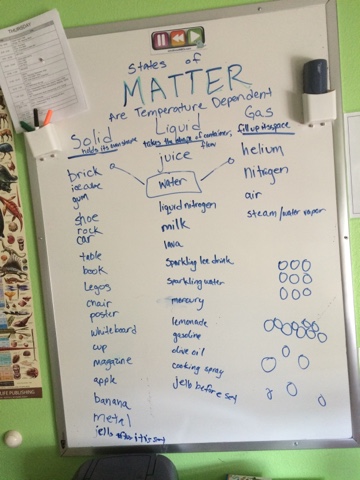 THURSDAY
States of
MATTER
Are Temperature Dependent
Solid
holds its own shape
Liquid
takes the shape of container,
flow
Gas
fill up its space
brick
ice cube
gum
shoe
rock
car
table
book
Legos
chair
poster
whiteboard
cup
magazine
apple
banana
metal
jello after it is set
juice
water
liquid nitrogen
milk
lava
Sparkling Ice drink
Sparkling water
mercury
lemonade
gasoline
olive oil
cooking spray
jello before set
helium
nitrogen
air
steam/water vapor
LIFE PUBLISHING